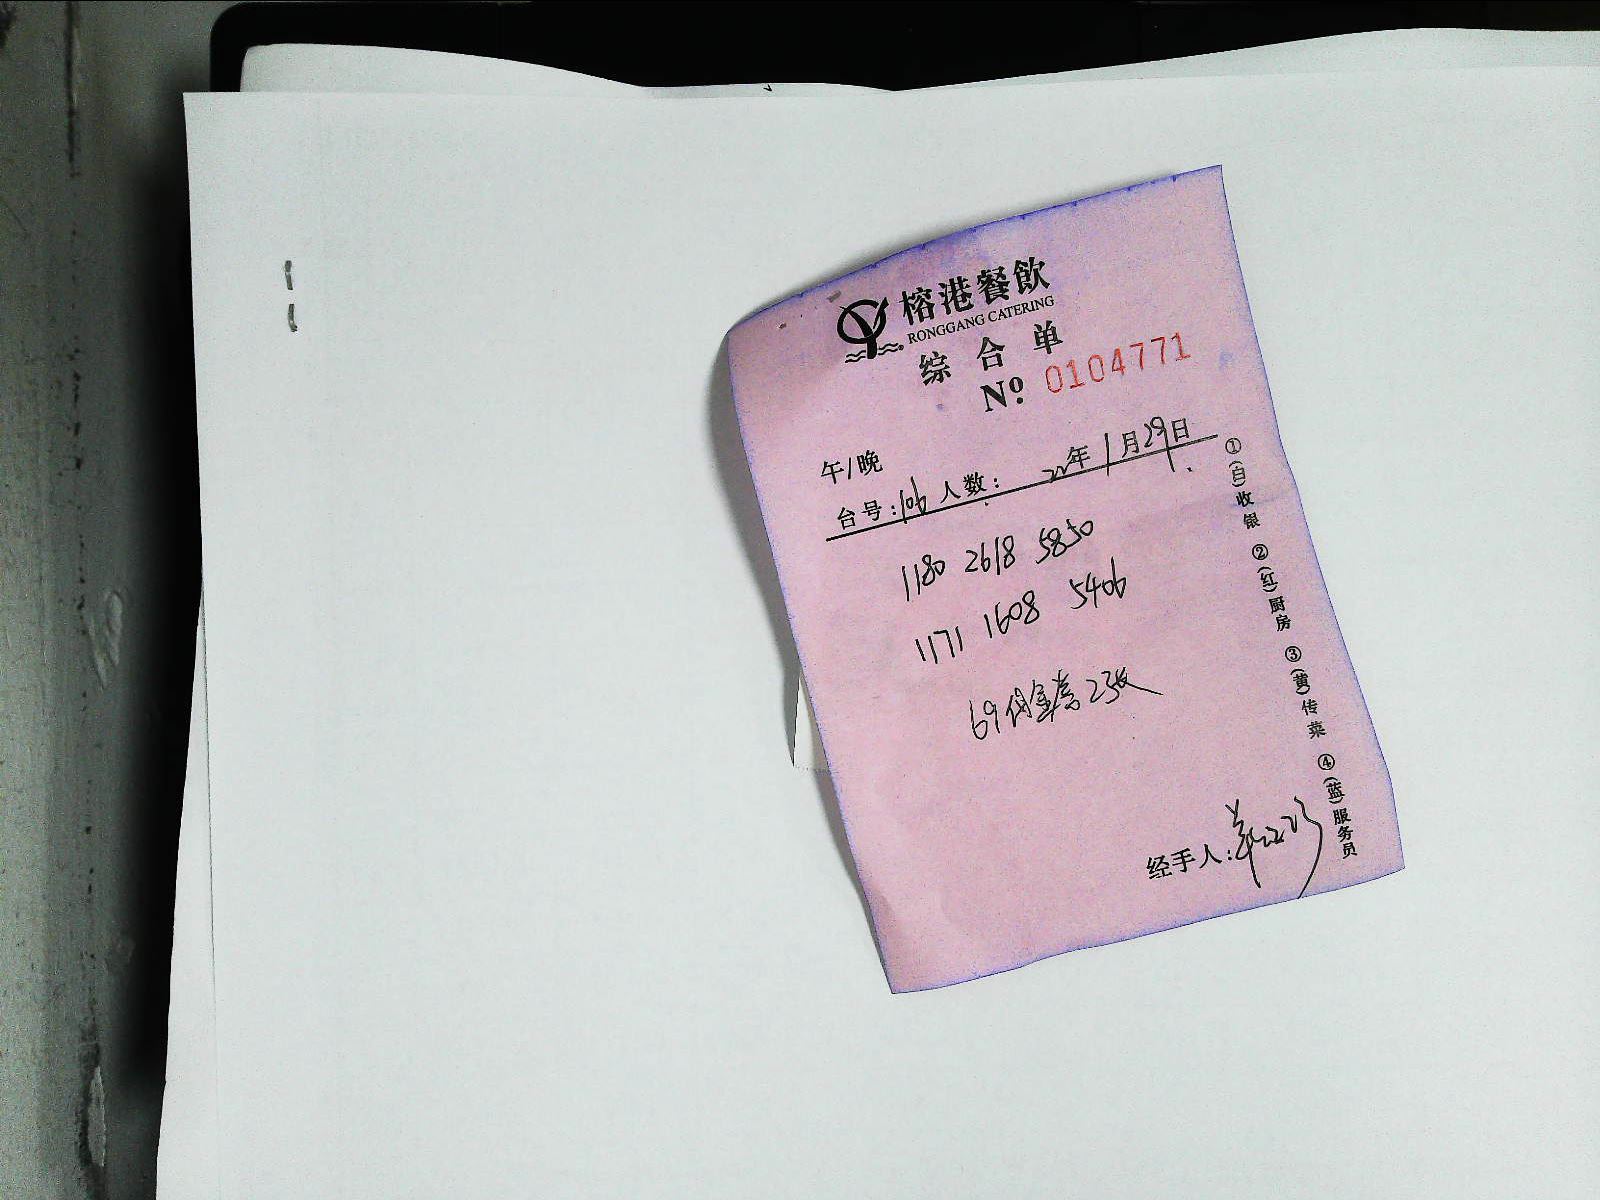 榕港餐飲
RONGGANG CATERING
综合单
Nº. 0104771
午/晚
台号:106 人数: 22年1月29日
1180 2618 5850
1171 1608 5406
69佣金套2张
经手人:
①(白)收银 ②(红)厨房 ③(黄)传菜 ④(蓝)服务员